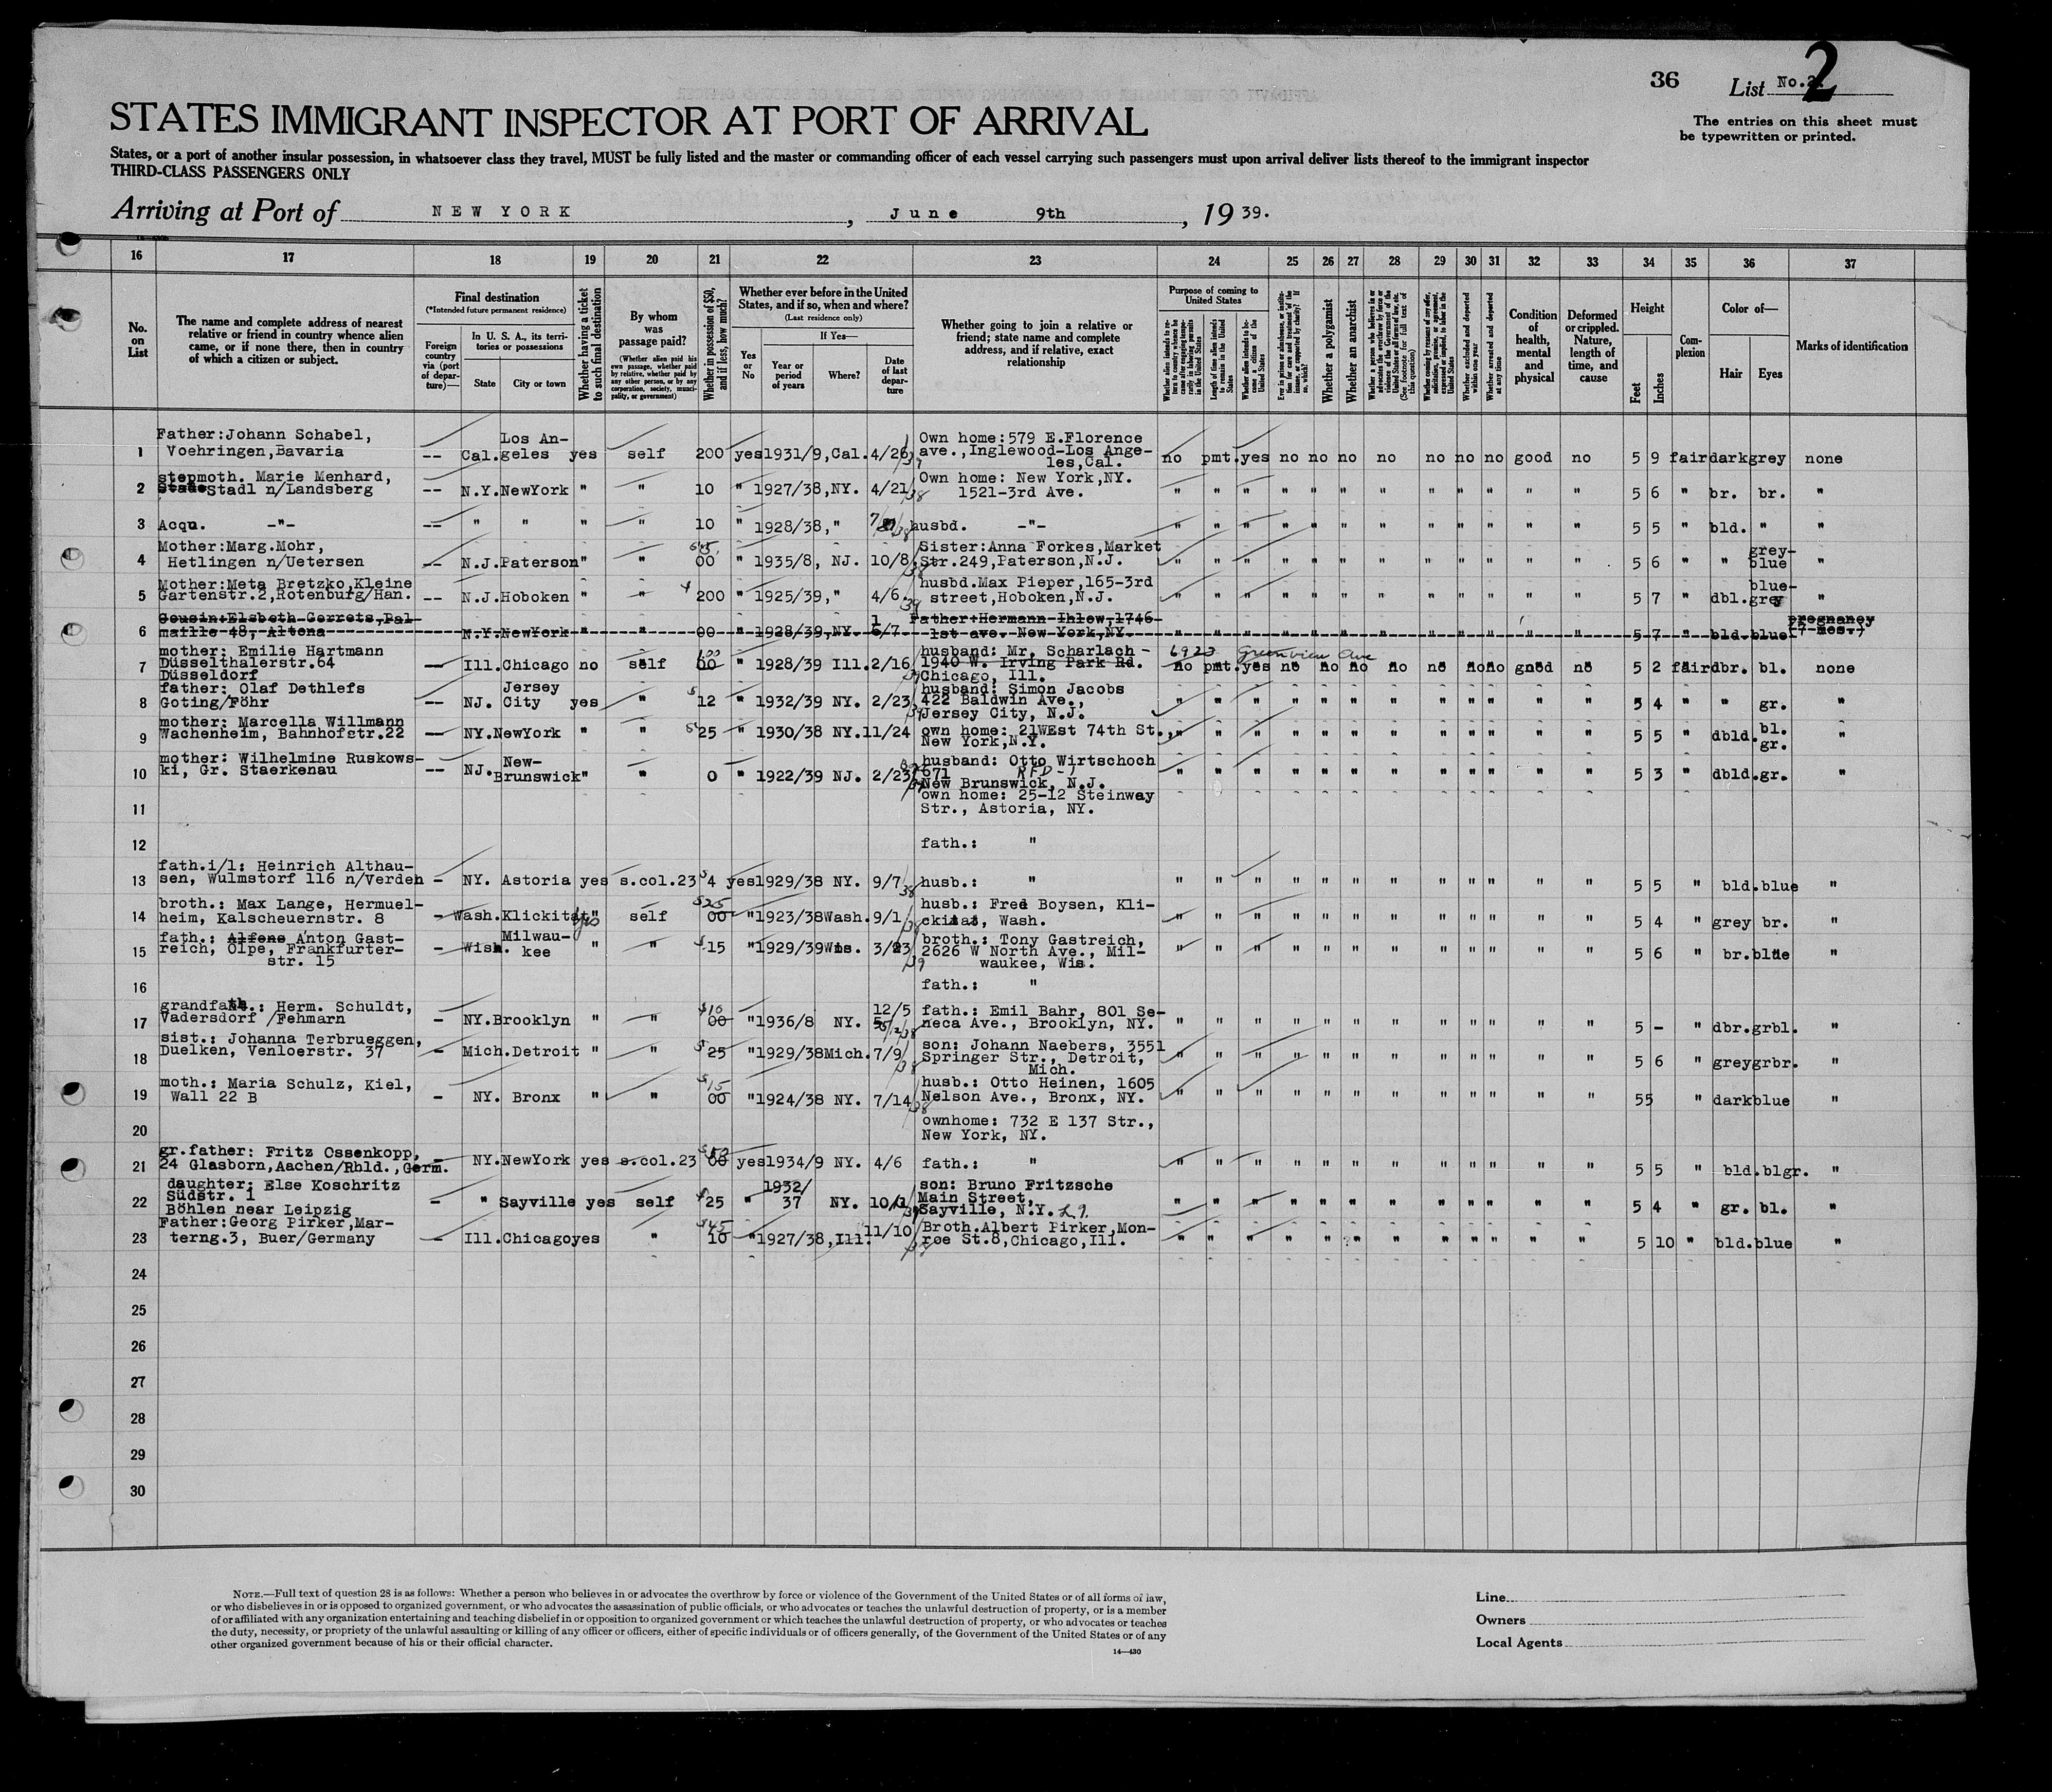 36 List No.2. 2
STATES IMMIGRANT INSPECTOR AT PORT OF ARRIVAL
The entries on this sheet must
be typewritten or printed.
States, or a port of another insular possession, in whatsoever class they travel, MUST be fully listed and the master or commanding officer of each vessel carrying such passengers must upon arrival deliver lists thereof to the immigrant inspector
THIRD-CLASS PASSENGERS ONLY
Arriving at Port of NEW YORK, June 9th, 19 39.
16 17 18 19 20 21 22 23 24 25 26 27 28 29 30 31 32 33 34 35 36 37
No. on List
The name and complete address of nearest relative or friend in country whence alien came, or if none there, then in country of which a citizen or subject.
Final destination
(*Intended future permanent residence)
Foreign country via (port of departure)—
In U. S. A., its territories or possessions
State
City or town
Whether having a ticket to such final destination
By whom was passage paid?
(Whether alien paid his own passage, whether paid by relative, whether paid by any other person, or by any corporation, society, municipality, or government)
Whether in possession of $50, and if less, how much?
Whether ever before in the United States, and if so, when and where?
(Last residence only)
Yes or No
If Yes—
Year or period of years
Where?
Date of last departure
Whether going to join a relative or friend; state name and complete address, and if relative, exact relationship
Purpose of coming to United States
Length of time alien intends to remain in the United States
Whether alien intends to become a citizen of the United States
Whether a polygamist
Whether an anarchist
Whether excluded and deported within one year
Whether arrested and deported at any time
Condition of health, mental and physical
Deformed or crippled. Nature, length of time, and cause
Height
Feet
Inches
Complexion
Color of—
Hair
Eyes
Marks of identification
1 Father:Johann Schabel, Voehringen,Bavaria -- Cal. Los Angeles yes self 200 yes 1931/9,Cal. 4/26/39 Own home:579 E.Florence ave.,Inglewood-Los Angeles,Cal. no pmt. yes no no no no no no no good no 5 9 fair dark grey none
2 stepmoth. Marie Menhard, Stadl n/Landsberg -- N.Y. NewYork " " 10 " 1927/38,NY. 4/21/38 Own home: New York,NY. 1521-3rd Ave. " " " " " " " " " " " " 5 6 " br. br. "
3 Acqu. -"- -- " " " " 10 " 1928/38," husbd. -"- " " " " " " " " " " " " 5 5 " bld. " "
4 Mother:Marg.Mohr, Hetlingen n/Uetersen -- N.J. Paterson " " 00 " 1935/8, NJ. 10/8/38 Sister:Anna Forkes,Market Str.249,Paterson,N.J. " " " " " " " " " " " " 5 6 " " grey-blue "
5 Mother:Meta Bretzko,Kleine Gartenstr.2,Rotenburg/Han. -- N.J. Hoboken " " 200 " 1925/39," 4/6/39 husbd.Max Pieper,165-3rd street,Hoboken,N.J. " " " " " " " " " " " " 5 7 " dbl. blue-grey "
6 Cousin:Elsbeth Gerrets,Palmaille 48, Altona N.Y. NewYork " " 00 " 1928/39,NY. Father:Hermann Ihlew,1746-1st ave. New York,NY. " " " " " " " " " " " " 5 7 " bld. blue pregnancy (7 mos.)
7 mother: Emilie Hartmann Düsselthalerstr.64 Düsseldorf -- Ill. Chicago no self 100 00 " 1928/39 Ill. 2/16/39 husband: Mr. Scharlach - 1940 W. Irving Park Rd. Chicago, Ill. 6923 Greenview Ave no pmt. yes no no no no no no no good no 5 2 fair dbr. bl. none
8 father: Olaf Dethlefs Goting/Föhr -- NJ. Jersey City yes " 12 " 1932/39 NY. 2/23/39 husband: Simon Jacobs 422 Baldwin Ave., Jersey City, N.J. " " " " " " " " " " " " 5 4 " " gr. "
9 mother: Marcella Willmann Wachenheim, Bahnhofstr.22 -- NY. NewYork " " $25 " 1930/38 NY. 11/24 own home: 21WEst 74th St., New York,N.Y. " " " " " " " " " " " " 5 5 " dbld. bl. gr. "
10 mother: Wilhelmine Ruskowski, Gr. Staerkenau -- NJ. New-Brunswick " " 0 " 1922/39 NJ. 2/23/39 husband: Otto Wirtschoch Box 671 RFD-1 New Brunswick, N.J. " " " " " " " " " " " " 5 3 " dbld. gr. "
11 own home: 25-12 Steinway Str., Astoria, NY.
12 fath.: "
13 fath.i/l: Heinrich Althausen, Wulmstorf 116 n/Verden - NY. Astoria yes s.col.23 $4 yes 1929/38 NY. 9/7/38 husb.: " " " " " " " " " " " " " 5 5 " bld. blue "
14 broth.: Max Lange, Hermuelheim, Kalscheuernstr. 8 - Wash. Klickitat " yes self $25 00 " 1923/38 Wash. 9/1/38 husb.: Fred Boysen, Klickitat, Wash. " " " " " " " " " " " " 5 4 " grey br. "
15 fath.: Alfons Anton Gastreich, Olpe, Frankfurterstr. 15 - Wisk. Milwaukee " " $15 " 1929/39 Wis. 3/23/39 broth.: Tony Gastreich, 2626 W North Ave., Milwaukee, Wis. " " " " " " " " " " " " 5 6 " br. blue "
16 fath.: "
17 grandfath.: Herm. Schuldt, Vadersdorf /Fehmarn - NY. Brooklyn " " $10 00 " 1936/8 NY. 12/5 fath.: Emil Bahr, 801 Seneca Ave., Brooklyn, NY. " " " " " " " " " " " " 5 - " dbr. grbl. "
18 sist.: Johanna Terbrueggen, Duelken, Venloerstr. 37 - Mich. Detroit " " $25 " 1929/38 Mich. 7/9/38 son: Johann Naebers, 3551 Springer Str., Detroit, Mich. " " " " " " " " " " " " 5 6 " grey grbr. "
19 moth.: Maria Schulz, Kiel, Wall 22 B - NY. Bronx " " $15 00 " 1924/38 NY. 7/14/38 husb.: Otto Heinen, 1605 Nelson Ave., Bronx, NY. " " " " " " " " " " " " 55 " dark blue "
20 ownhome: 732 E 137 Str., New York, NY.
21 gr.father: Fritz Ossenkopp, 24 Glasborn,Aachen/Rhld.,Germ. - NY. NewYork yes s.col.23 00 yes 1934/9 NY. 4/6 fath.: " " " " " " " " " " " " " 5 5 " bld. blgr. "
22 daughter: Else Koschritz Südstr. 1 Böhlen near Leipzig - " Sayville yes self $25 " 1932/37 NY. son: Bruno Fritzsche Main Street, Sayville, N.Y. L.I. " " " " " " " " " " " " 5 4 " gr. bl. "
23 Father:Georg Pirker,Marterng.3, Buer/Germany - Ill. Chicago yes " $45 10 " 1927/38,Ill. 11/10 Broth.Albert Pirker,Monroe St.8,Chicago,Ill. " " " " " " " " " " " " 5 10 " bld. blue "
24
25
26
27
28
29
30
NOTE.—Full text of question 28 is as follows: Whether a person who believes in or advocates the overthrow by force or violence of the Government of the United States or of all forms of law,
or who disbelieves in or is opposed to organized government, or who advocates the assassination of public officials, or who advocates or teaches the unlawful destruction of property, or is a member
of or affiliated with any organization entertaining and teaching disbelief in or opposition to organized government or which teaches the unlawful destruction of property, or who advocates or teaches
the duty, necessity, or propriety of the unlawful assaulting or killing of any officer or officers, either of specific individuals or of officers generally, of the Government of the United States or of any
other organized government because of his or their official character.
14—430
Line
Owners
Local Agents